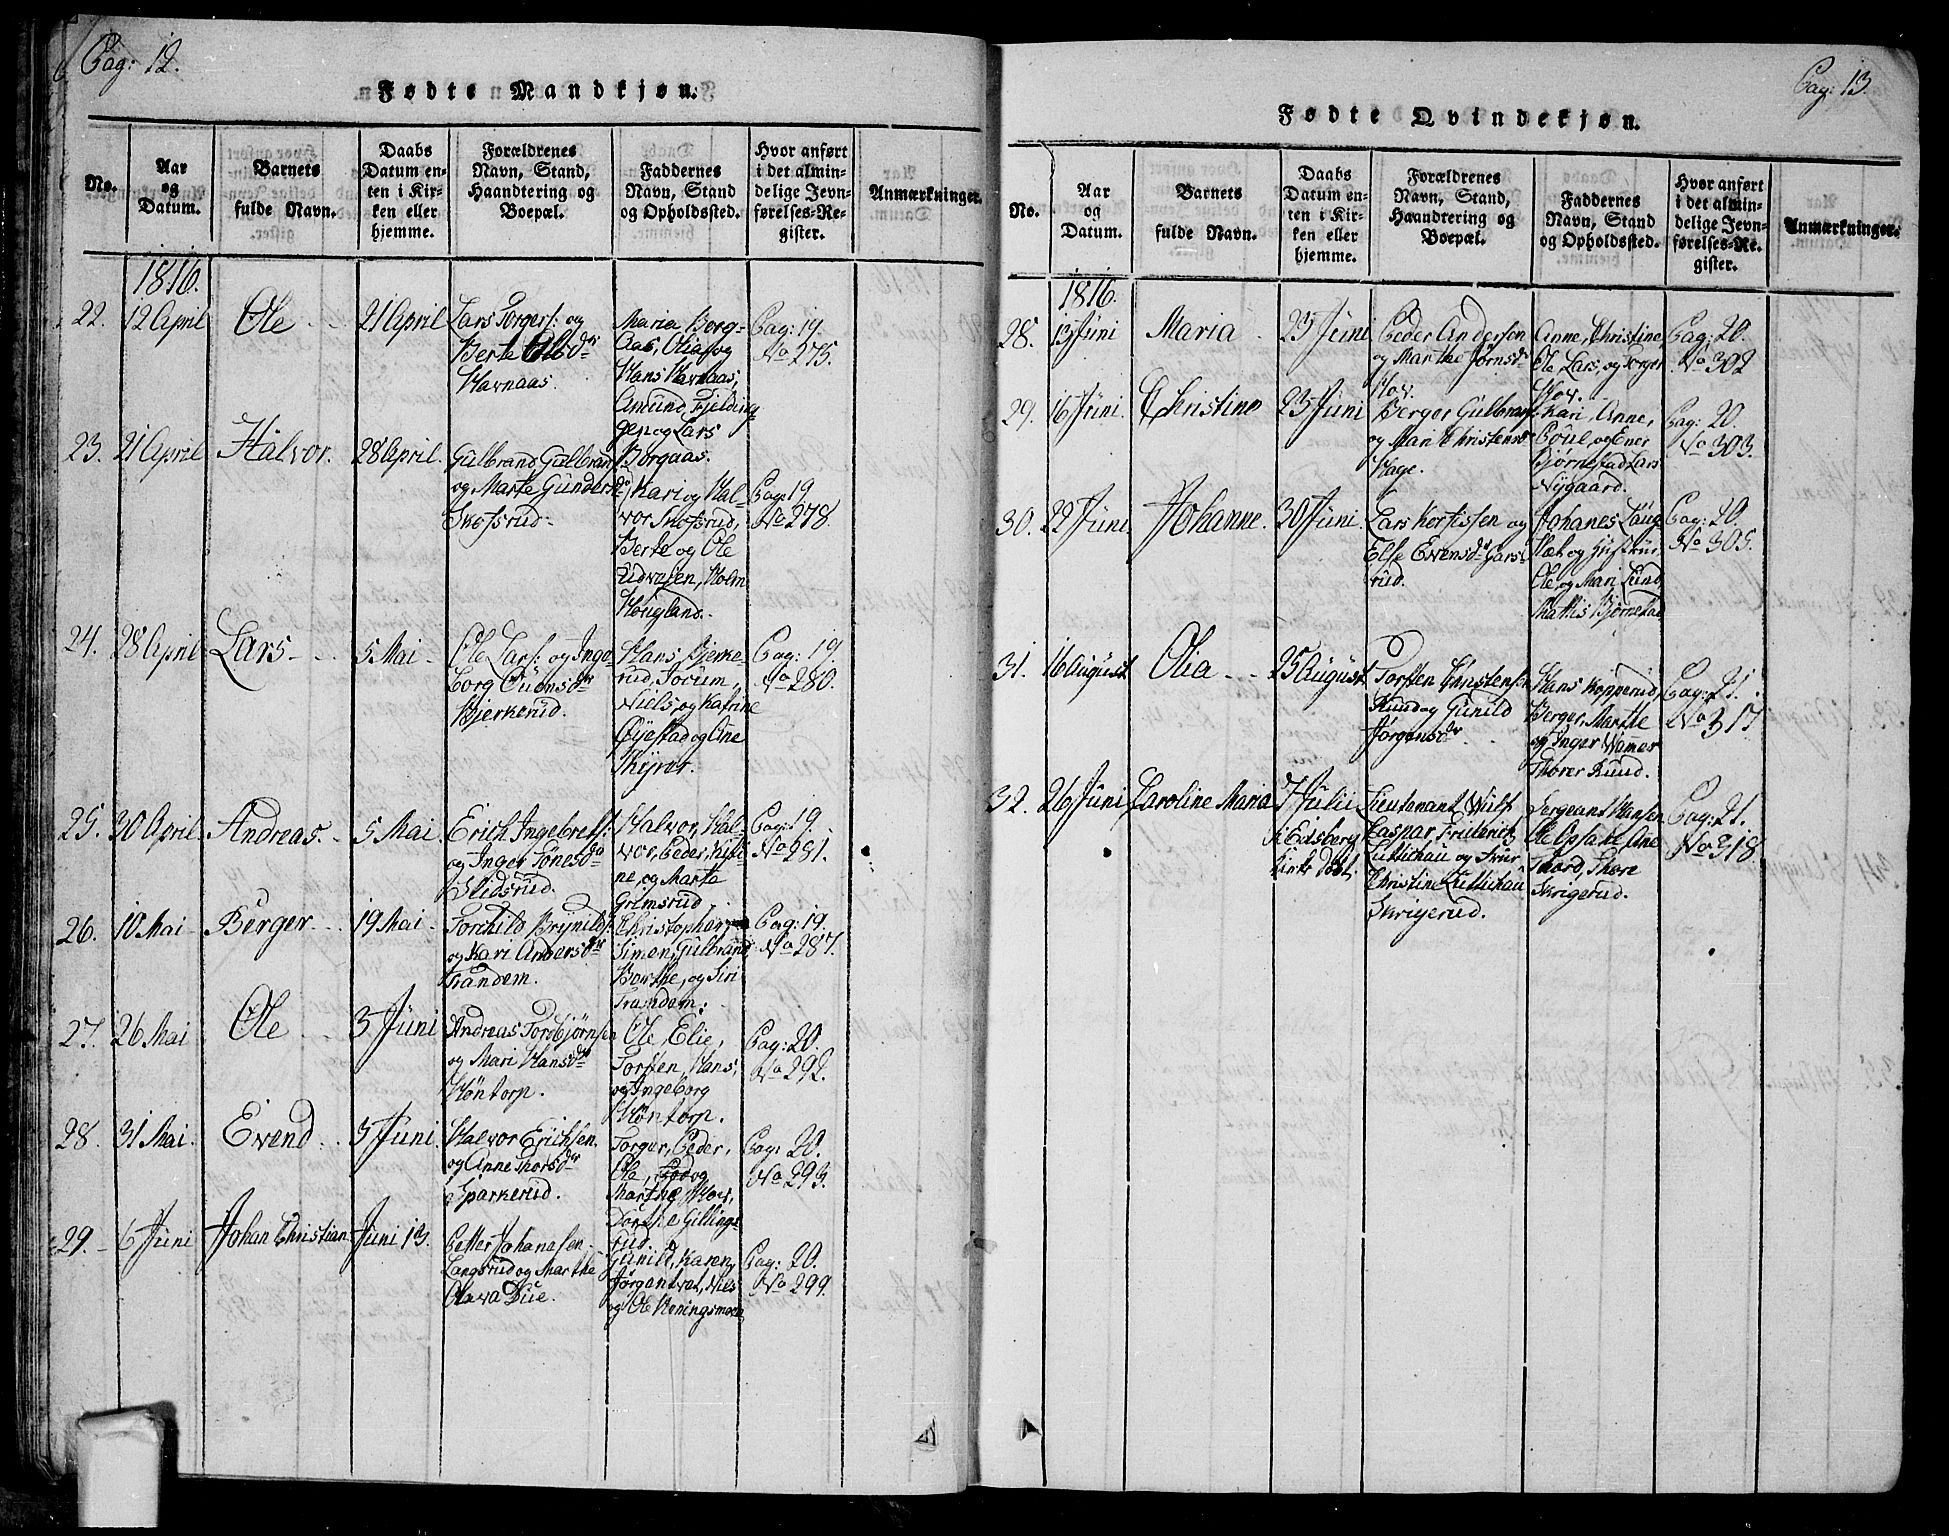 Pag: 12.
Fødte Mandkjøn.
No.
Aar
og
Datum.
Barnets
fulde Navn.
Daabs
Datum en-
ten i Kir-
ken eller
hjemme.
Forældrenes
Navn, Stand,
Haandtering og
Boepæl.
Faddernes
Navn, Stand
og Opholdssted.
Hvor anført
i det almin-
delige Jevn-
førelses-Re-
gister.
Anmærkninger.
1816.
22.
12 April
Ole
21 April
Lars Torgers: og
Berte Olsdr
Havnaas.
Maria Borg-
aas, Olia og
Hans Havnaas,
Amund Fjelding
gen og Lars
Borgaas.
Pag: 19.
No 275.
23.
21 April
Halvor.
28 April.
Gulbrand Gulbran
og Marte Gunders
Skofsrud.
Kari og Hal-
vor Skofsrud,
Berte og Ole
Holm
Hougland.
Pag: 19
No 278.
24.
28 April
Lars
5 Mai
Ole Lars: og Inge
borg Euensdr
Bjerkerud.
Hans Bjerke-
rud, Jocum,
Niels, og Katrine
Øiestad og Ane
Pag: 19.
No 280.
25.
30 April
Andreas.
5 Mai
Erich Ingebrets:
og Inger Tønesdr
Slidsrud.
Halvor, Hal-
vor, Peder, Kisti
ne, og Marte
Grimsrud
Pag: 19.
No 281.
26.
10 Mai
Berger
19 Mai
Torchild Brynilds:
og Kari Andersdr
Trandem.
Christopher,
Simen, Gulbrand
Berthe, og Siri
Trandem.
Pag: 19.
No 287.
27.
26 Mai
Ole
3 Juni
Andreas Tordbjørnsen
og Mari Hansdr
Høntorp.
Ole, Elie,
Torsten, Hans,
og Ingeborg
Høntorp.
Pag: 20.
No 292.
28.
31 Mai.
Evend
3 Juni.
Halvor Erichsen
og Anne Thorsdr
Sparkerud.
Torger, Peder,
Ole, og
Marthe Hov,
Dorthe Gillings-
rud.
Pag: 20.
No 293.
29.
6 Juni
Johan Christian
Juni 13.
Petter Johansen
Langsrud og Marthe
Olava Due.
Gunild, Karen,
Jørgen tvet, Niels
og Ole Koningsmoen
Pag: 20.
No 299.
Pag: 13.
Fødte Qvindekjøn.
No.
Aar
og
Datum.
Barnets
fulde Navn.
Daabs
Datum en-
ten i Kir-
ken eller
hjemme.
Forældrenes
Navn, Stand,
Haandtering og
Boepæl.
Faddernes
Navn, Stand
og Opholdssted.
Hvor anført
i det almin-
delige Jevn-
førelses-Re-
gister.
Anmærkninger.
1816.
28.
13 Juni
Maria
23 Juni
Peder Andersen
og Marthe Jørnsdr
Hov.
Anne, Christine,
Ole, Lars, og Torger
Hov.
Pag: 20.
No 302
29.
16 Juni.
Christine
23 Juni
Berger Gulbran
og Mari Christens
Hage.
Kari, Anne,
Poul, og Ener
Bjørnestad Lars
Nygaard.
Pag: 20.
No 303.
30.
22 Juni
Johanne.
30 Juni.
Lars Kortissen og
Else Evensdr Gars-
rud.
Johanes Laug-
slæt og Hustrue,
Ole, og Mari Lund
Mathis Bjørnestad
Pag: 20.
No 305.
31.
16 August
Olia
25 August
Torsten Christensen
Ruud og Gunild
Jørgensdr
Hans Kopperud,
Berger, Marthe
og Inger Wames
Thorer Ruud.
Pag: 21.
No 317
32.
26 Juni
Caroline Maria
7 Julii
i Eidsberg
Kirke døbt.
Lieutenant Wulf
Caspar, Friderich
Luttichau og Frue
Christine Luttichau
Skrigerud.
Sergeant Hansen
Ole Opsahl, Ane
Thord, Thore
Skrigerud.
Pag: 21.
No 318.